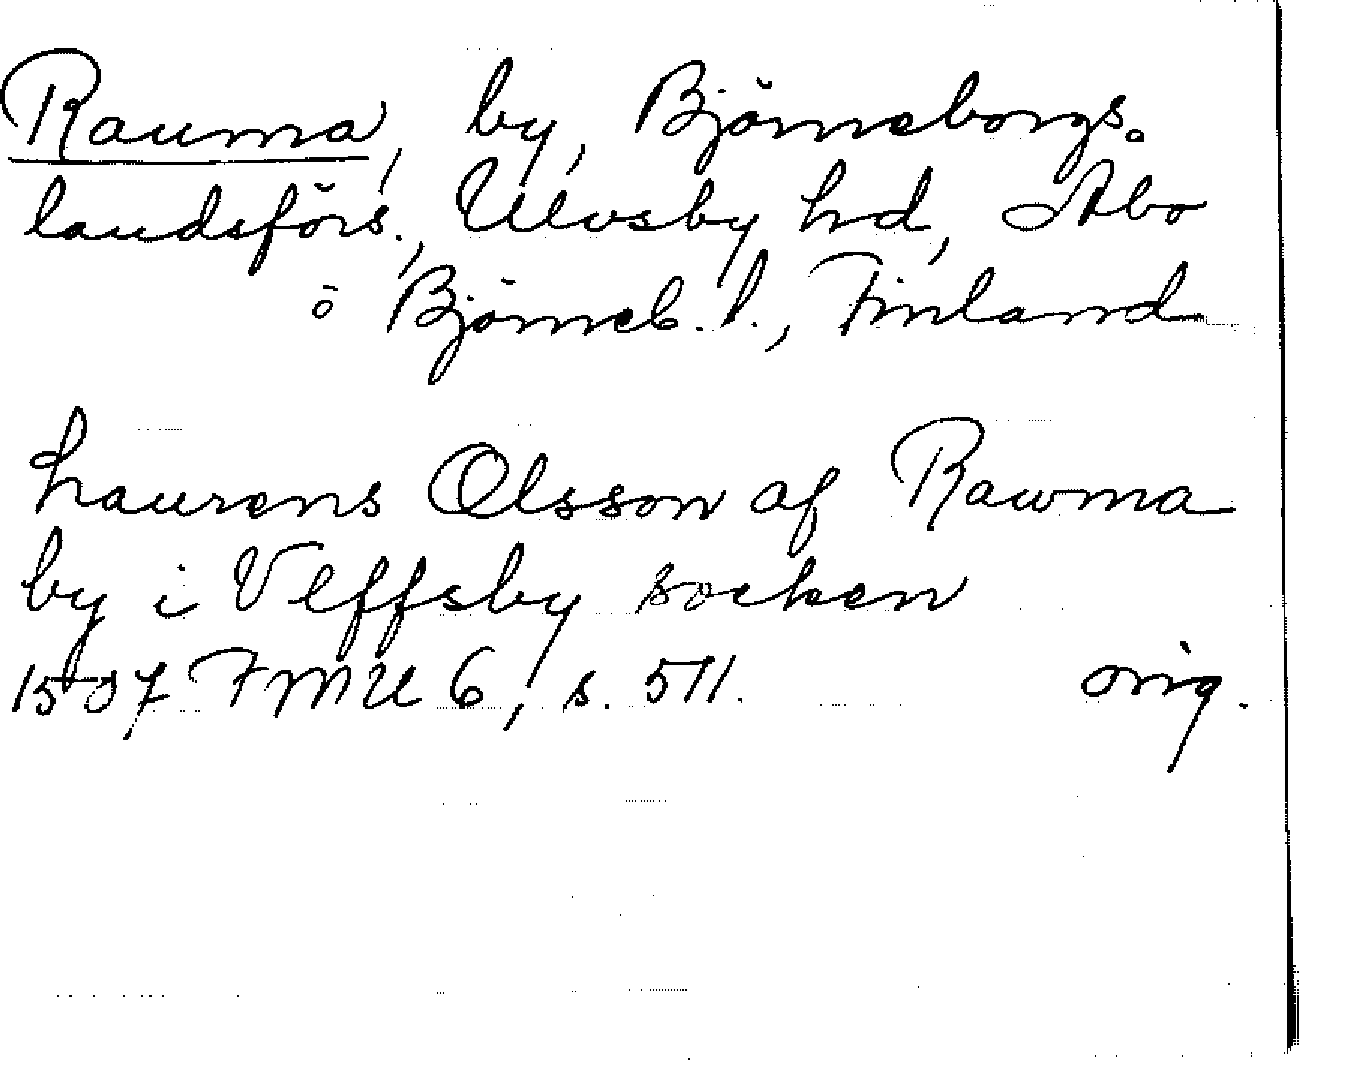 Rauma, by, Björneborgs
landsförs., Ulvsby hd, Åbo
o Björneb. l., Finland
Laurens Olsson af Rawma
by i Vlffsby socken
1507 FMU 6, s. 511. orig.